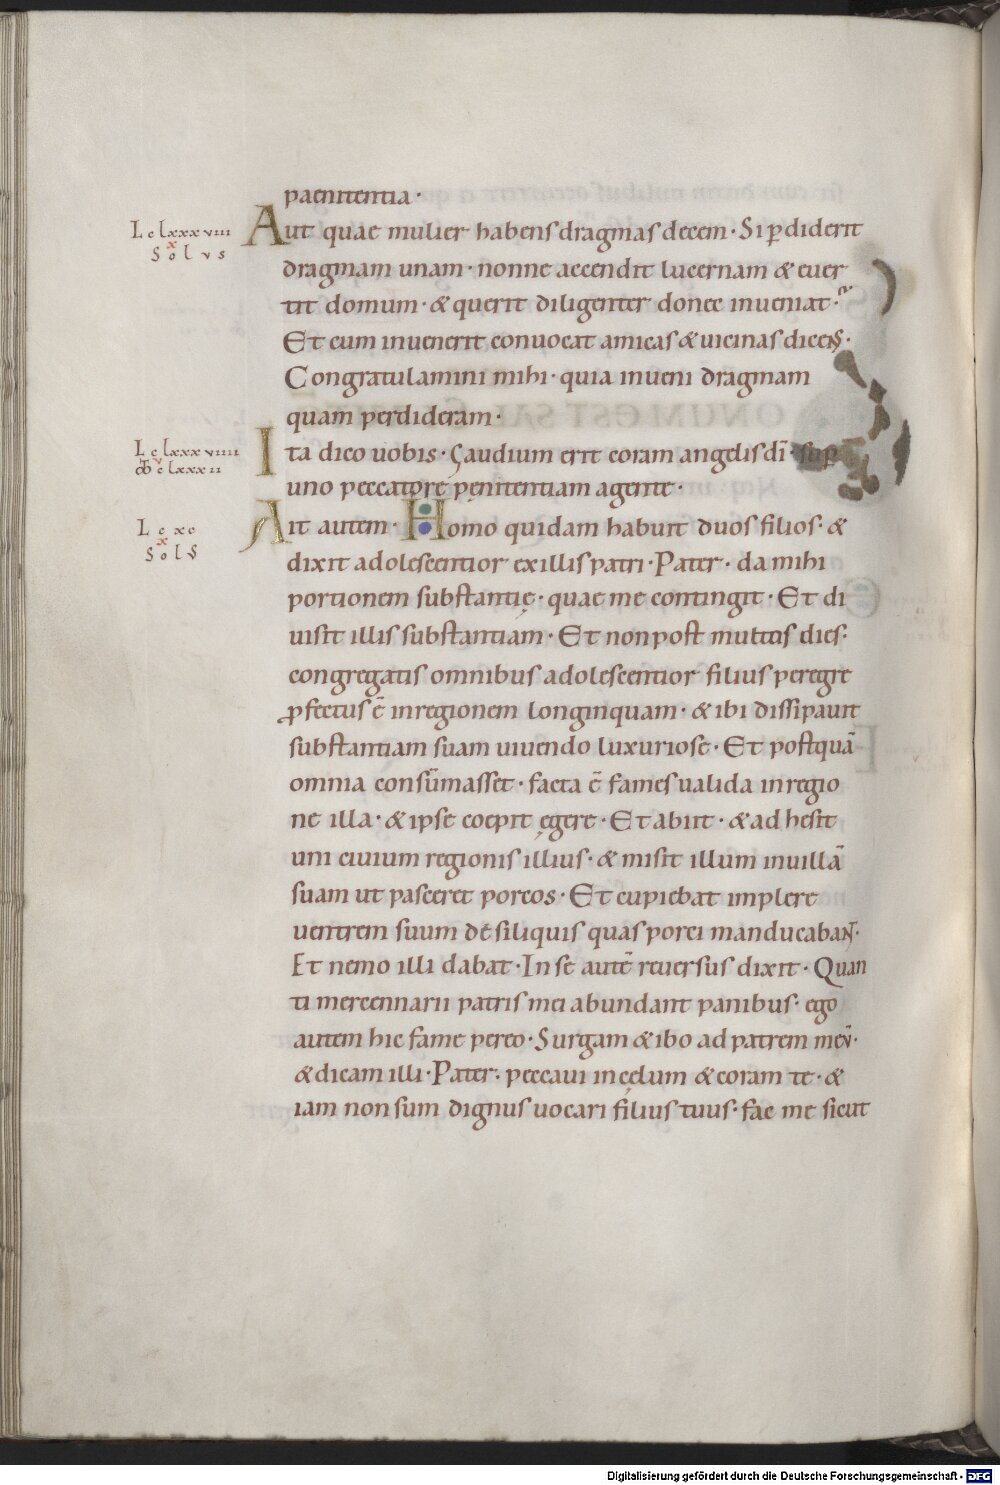 paenitentia ·
L c lxxxviii
x
Solus
Aut quae mulier habens dragmas decem · Si pdiderit
dragmam unam · nonne accendit lucernam & euer
tit domum · & querit diligenter donec inueniat ·
Et cum inuenerit conuocat amicas & uicinas dicens ·
Congratulamini mihi · quia inueni dragmam
quam perdideram ·
L c lxxxviiii
v
c lxxxii
Ita dico uobis · Gaudium erit coram angelis dī · sup
uno peccatore pęnitentiam agente ·
L c xc
x
SolS
Ait autem · Homo quidam habuit duos filios · &
dixit adolescentior ex illis patri · Pater · da mihi
portionem substantię · quae me contingit · Et di
uisit illis substantiam · Et non post multos dies ·
congregatis omnibus adolescentior filius peregre
pfectus ē in regionem longinquam · & ibi dissipauit
substantiam suam uiuendo luxuriose · Et postquā
omnia consūmasset · facta ē fames ualida in regio
ne illa · & ipse coepit egere · Et abiit · & adhesit
uni ciuium regionis illius · & misit illum in uillā
suam ut pasceret porcos · Et cupiebat implere
uentrem suum de siliquis quas porci manducabant ·
Et nemo illi dabat · In se autē reuersus dixit · Quan
ti mercennarii patris mei abundant panibus · ego
autem hic fame pereo · Surgam & ibo ad patrem meū ·
& dicam illi · Pater · peccaui in cęlum & coram te · &
iam non sum dignus uocari filius tuus · fac me sicut
Digitalisierung gefördert durch die Deutsche Forschungsgemeinschaft - DFG